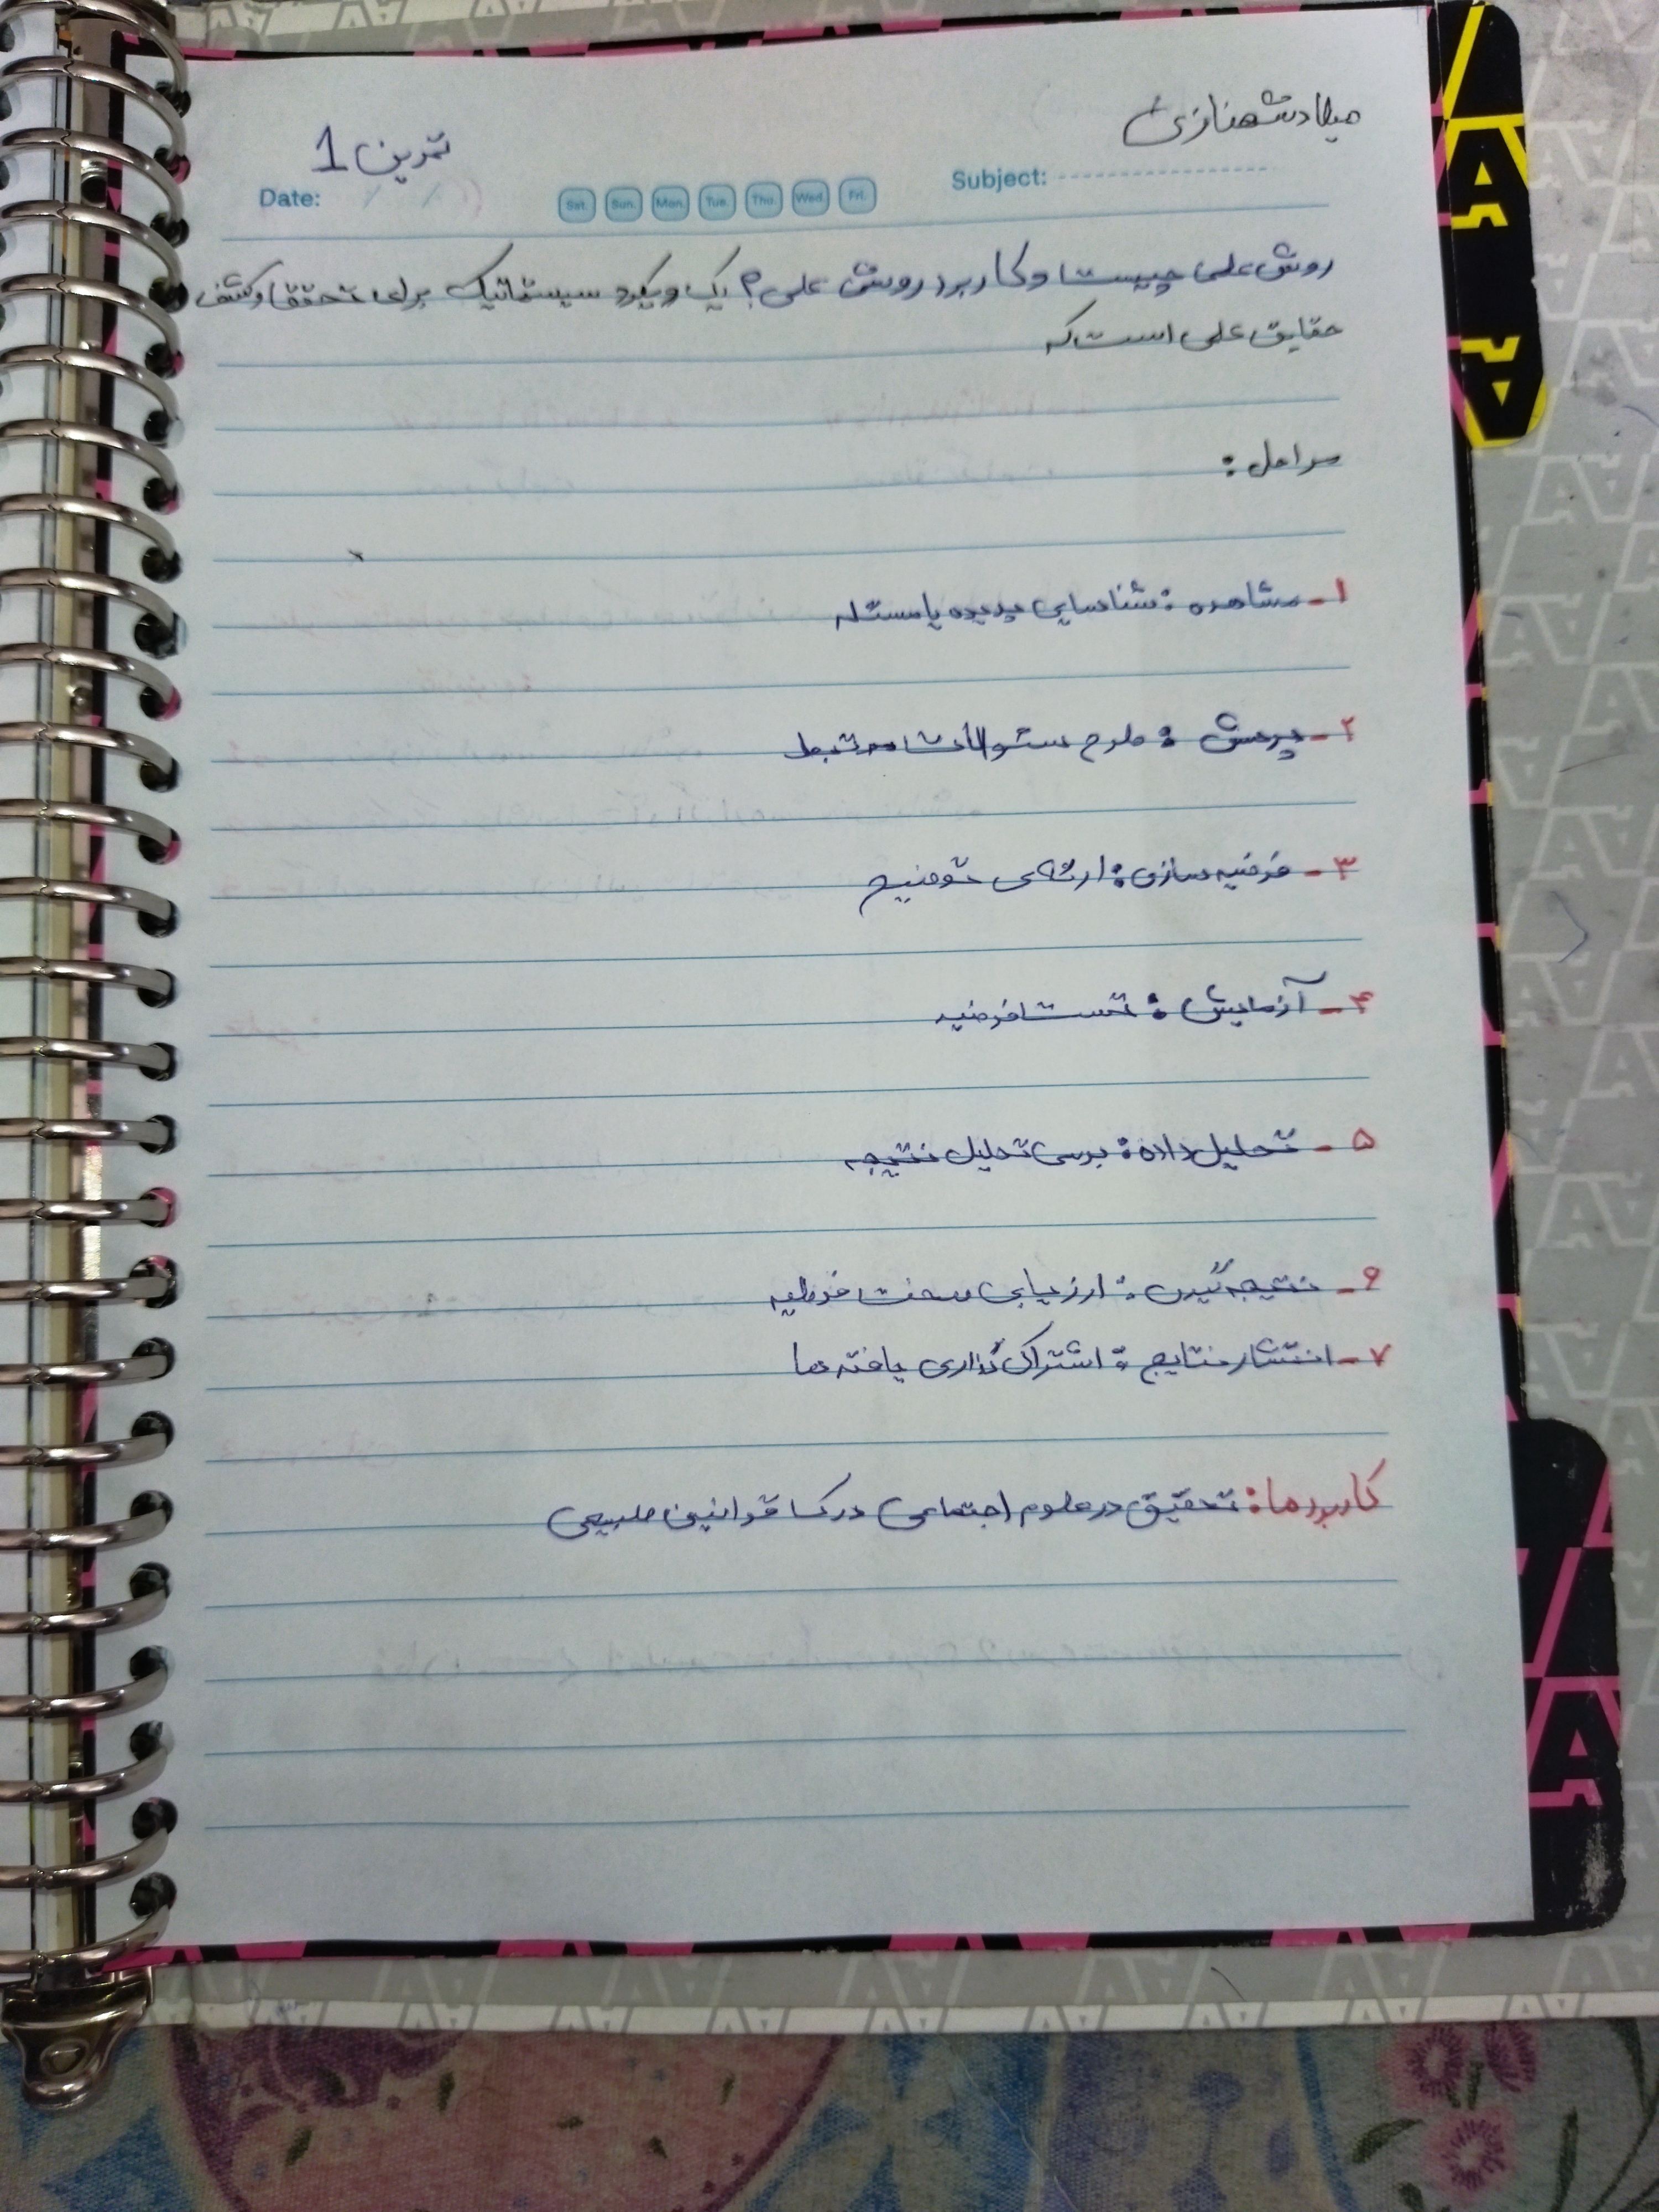 میلاد شهنازی
تمرین 1
Date: / /
Sat. Sun. Mon. Tue. Thu. Wed. Fri.
Subject:
روش علمی چیست و کاربرد روش علمی؟ یک ویکرد سیستماتیک برای تحقق و کشف
حقایق علمی است که
مراحل:
۱- مشاهده: شناسایی پدیده یا مسئله
۲- پرسش: طرح سئوالات مرتبط
۳- فرضیه سازی: ارئه ی توضیح
۴- آزمایش: تست فرضیه
۵- تحلیل داده: بررسی تحلیل نتیجه
۶- نتیجه گیری: ارزیابی صحت فرضیه
۷- انتشار نتایج: اشتراک گذاری یافته ها
کاربردها: تحقیق در علوم اجتماعی درک قوانین طبیعی